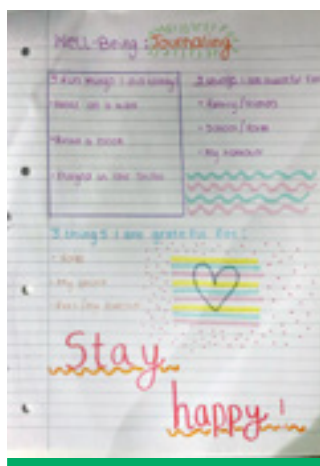 Well-Being: Journaling
3 fun things I did today
- Went on a walk
- Read a book
- Played in the
3 things I am grateful for
- Family/friends
- School/
- My
3 things I am grateful for:
- My
Stay
happy!